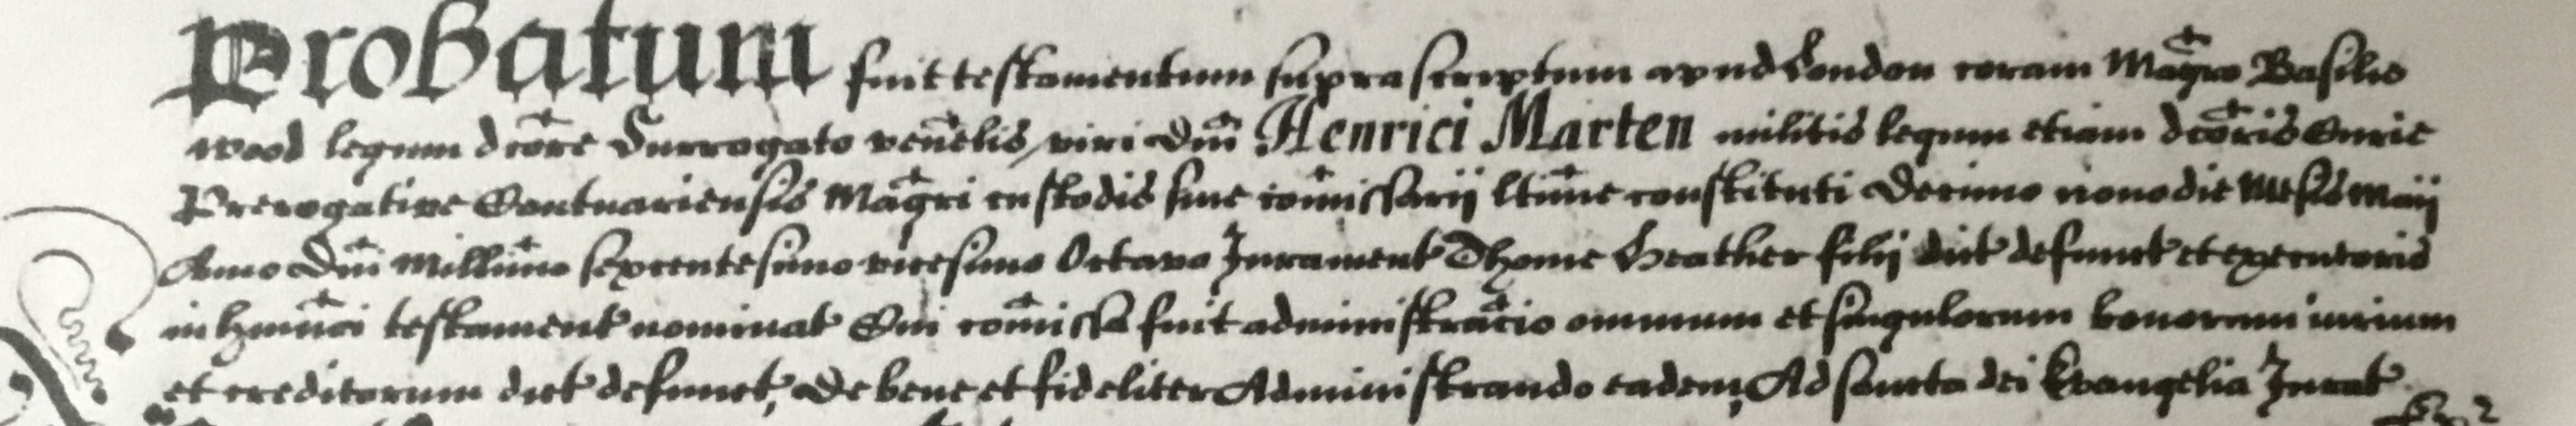 Probatum fuit testamentum suprascriptum apud London coram Magro Basilio
Wood legum dcore Surrogato venelis viri Dni Henrici Marten militis legum etiam dcoris Curie
Prerogative Cantuariensis Magri custodis sive comissarii ltime constituti Decimo nono die Mesis Maii
Anno Dni Millimo sexcentesimo vicesimo Octavo Jurament Thome Heather filij dict defunct et executoris
in hmnoi testament nominat Cui comissa fuit administracio omnium et singulorum bonorum iurium
et creditorum dict defunct, De bene et fideliter Administrando eadem, Ad sancta dei Evangelia Jurat